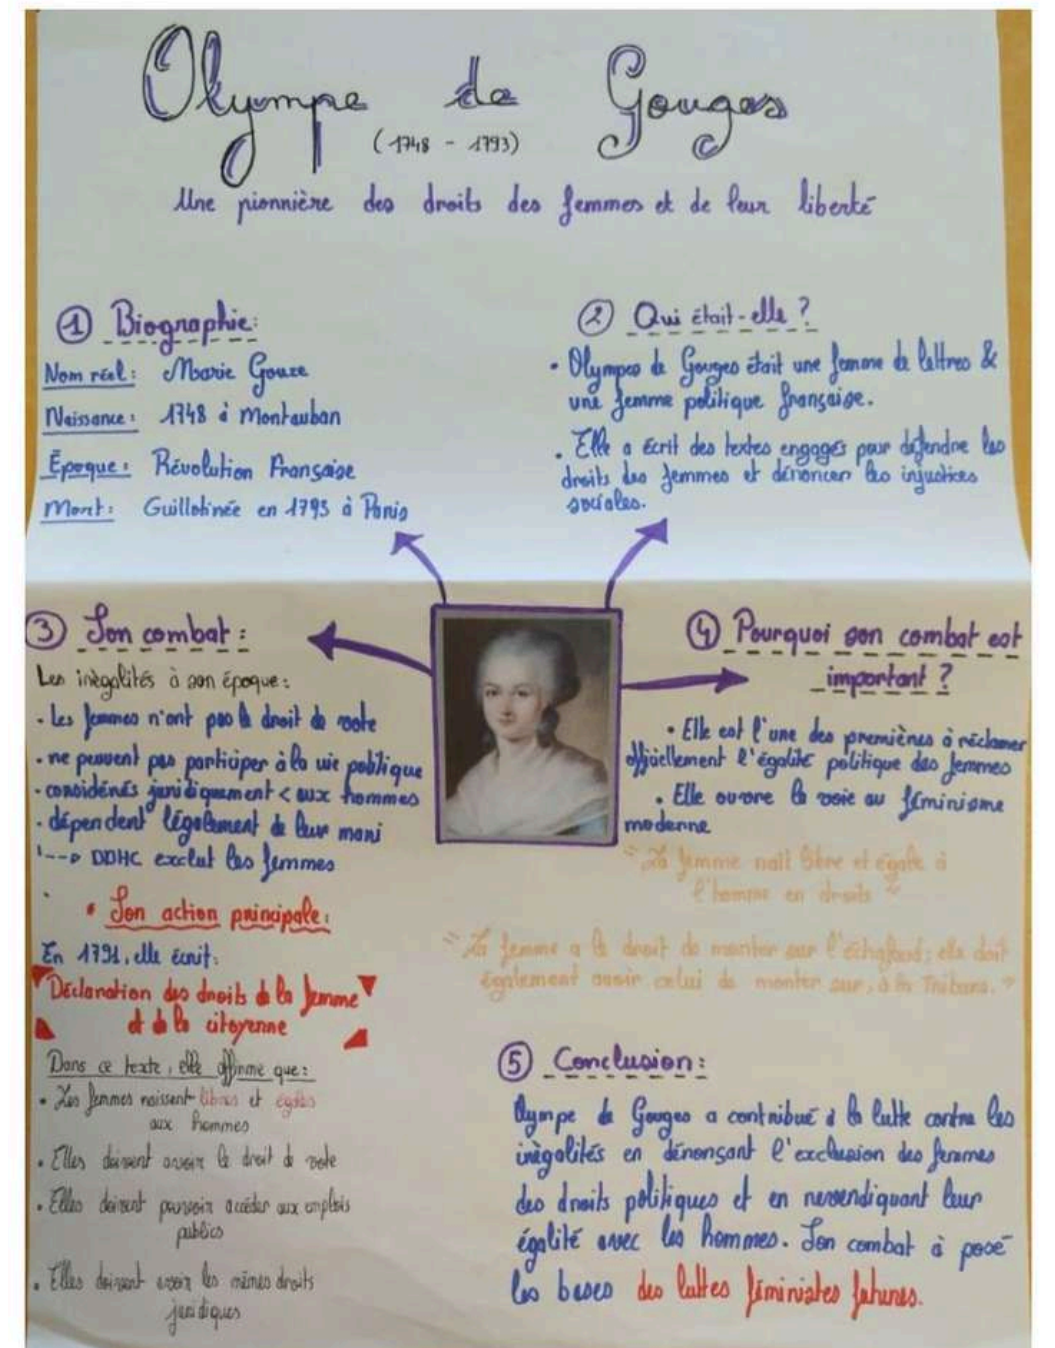 Olympe de Gouges
(1748 - 1793)
Une pionnière des droits des femmes et de leur liberté
① Biographie:
Nom réel: Marie Gouze
Naissance: 1748 à Montauban
Époque: Révolution Française
Mort: Guillotinée en 1793 à Paris
② Qui était-elle ?
• Olympes de Gouges était une femme de lettres &
une femme politique française.
• Elle a écrit des textes engagés pour défendre les
droits des femmes et dénoncer les injustices
sociales.
③ Son combat :
Les inégalités à son époque :
• Les femmes n'ont pas le droit de vote
• ne peuvent pas participer à la vie politique
• considérés juridiquement < aux hommes
• dépendent légalement de leur mari
DDHC exclut les femmes
• Son action principale:
En 1791, elle écrit:
Déclaration des droits de la femme
et de la citoyenne
Dans ce texte, elle affirme que :
• Les femmes naissent libres et égales
aux hommes
• Elles doivent avoir le droit de vote
• Elles doivent pouvoir accéder aux emplois
publics
• Elles doivent avoir les mêmes droits
juridiques
④ Pourquoi son combat est
important ?
• Elle est l'une des premières à réclamer
officiellement l'égalité politique des femmes
• Elle ouvre la voie au féminisme
moderne
" La femme naît libre et égale à
l'homme en droits "
" La femme a le droit de monter sur l'échafaud ; elle doit
également avoir celui de monter sur, à la Tribune. "
⑤ Conclusion :
Olympe de Gouges a contribué à la lutte contre les
inégalités en dénonçant l'exclusion des femmes
des droits politiques et en revendiquant leur
égalité avec les hommes. Son combat à posé
les bases des luttes féministes futures.